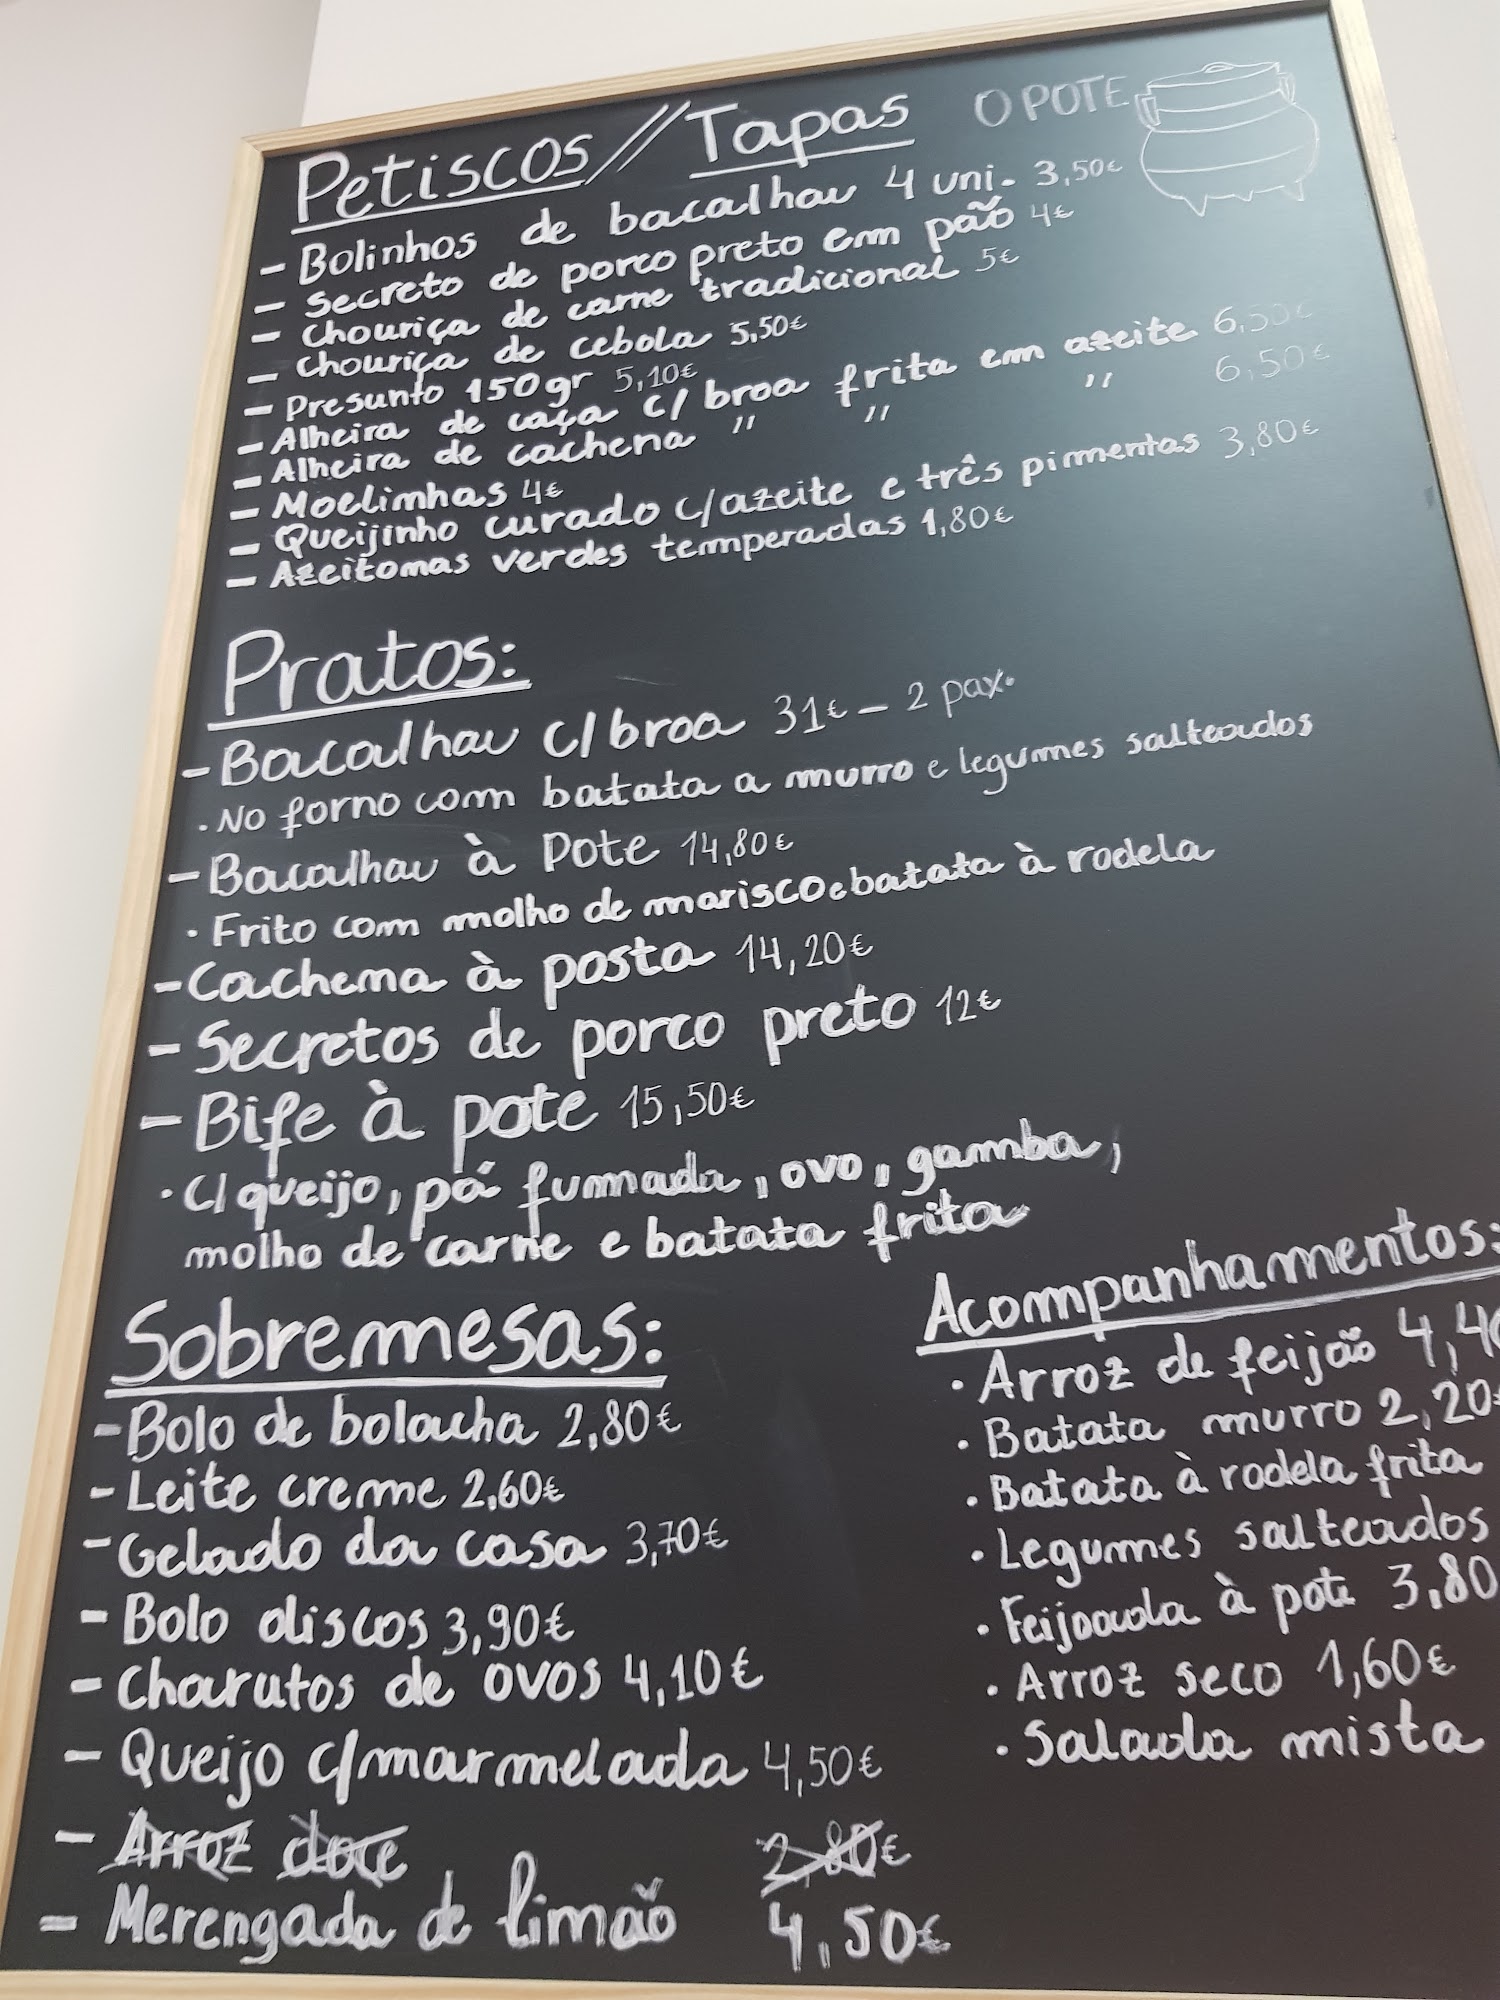 Petiscos // Tapas
O POTE
- Bolinhos de bacalhau 4 uni. 3,50€
- Secreto de porco preto em pão 4€
- Chouriça de carne tradicional 5€
- Chouriça de cebola 5,50€
- Presunto 150gr 5,10€
- Alheira de caça c/ broa frita em azeite 6,50€
- Alheira de cachena " " " 6,50€
- Moelinhas 4€
- Queijinho curado c/azeite e três pimentas 3,80€
- Azeitonas verdes temperadas 1,80€
Pratos:
- Bacalhau c/broa 31€ - 2 pax.
. No forno com batata a murro e legumes salteados
- Bacalhau à Pote 14,80€
. Frito com molho de marisco e batata à rodela
- Cachena à posta 14,20€
- Secretos de porco preto 12€
- Bife à pote 15,50€
. C/queijo, pá fumada, ovo, gamba,
molho de carne e batata frita
Sobremesas:
- Bolo de bolacha 2,80€
- Leite creme 2,60€
- Gelado da casa 3,70€
- Bolo discos 3,90€
- Charutos de ovos 4,10€
- Queijo c/marmelada 4,50€
- Arroz doce 2,80€
- Merengada de limão 4,50€
Acompanhamentos:
. Arroz de feijão 4,40
. Batata murro 2,20€
. Batata à rodela frita
. Legumes salteados
. Feijoada à pote 3,80
. Arroz seco 1,60€
. Salada mista